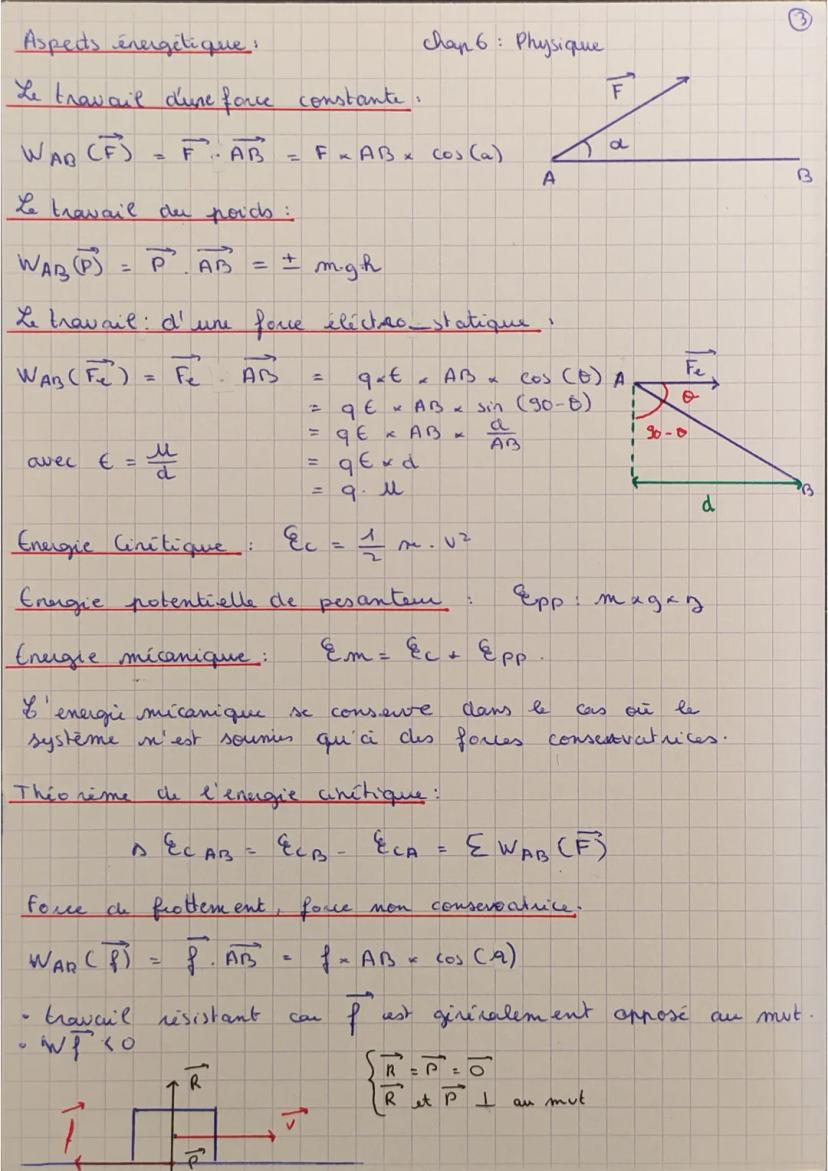 ③
Aspects énergétique : Chap 6 : Physique
Le travail d'une force constante :
W AB (F→) = F→ . AB→ = F × AB × cos(α)
F→
α
A B
Le travail du poids :
W AB (P→) = P→ . AB→ = ± mgh
Le travail : d'une force éléctro-statique :
W AB (Fe→) = Fe→ . AB→ = q×E × AB × cos (θ)
= qE × AB × sin (90-θ)
= qE × AB × d/AB
avec E = U/d = qE × d
= q . U
A Fe→
θ
90-θ
B
d
Energie Cinétique : Ec = 1/2 m . v²
Energie potentielle de pesanteur : Epp : m × g × z
Energie mécanique : Em = Ec + Epp .
L'energie mécanique se conserve dans le cas où le
système n'est soumis qu'à des forces conservatrices.
Théorème de l'énergie cinétique :
Δ Ec AB = EcB - EcA = Σ W AB (F→)
Force de frottement, force non conservatrice.
W AB (f→) = f→ . AB→ = f × AB × cos (α)
• travail résistant car f→ est généralement opposé au mvt.
• W f→ < 0
R→
f→
v→
P→
{ R→ = P→ = 0→
R→ et P→ ⊥ au mvt